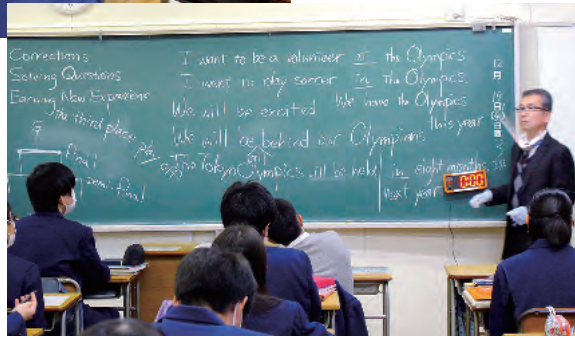 Corrections
Solving Questions
Earning New Expressions
the third place play
final
semi final
I want to be a volunteer at the Olympics.
I want to play soccer in the Olympics.
We will be excited
We have the Olympics
this year
We will be behind our Olympians
The Tokyo Olympics will be held
in eight months
next year
12
月
0:00